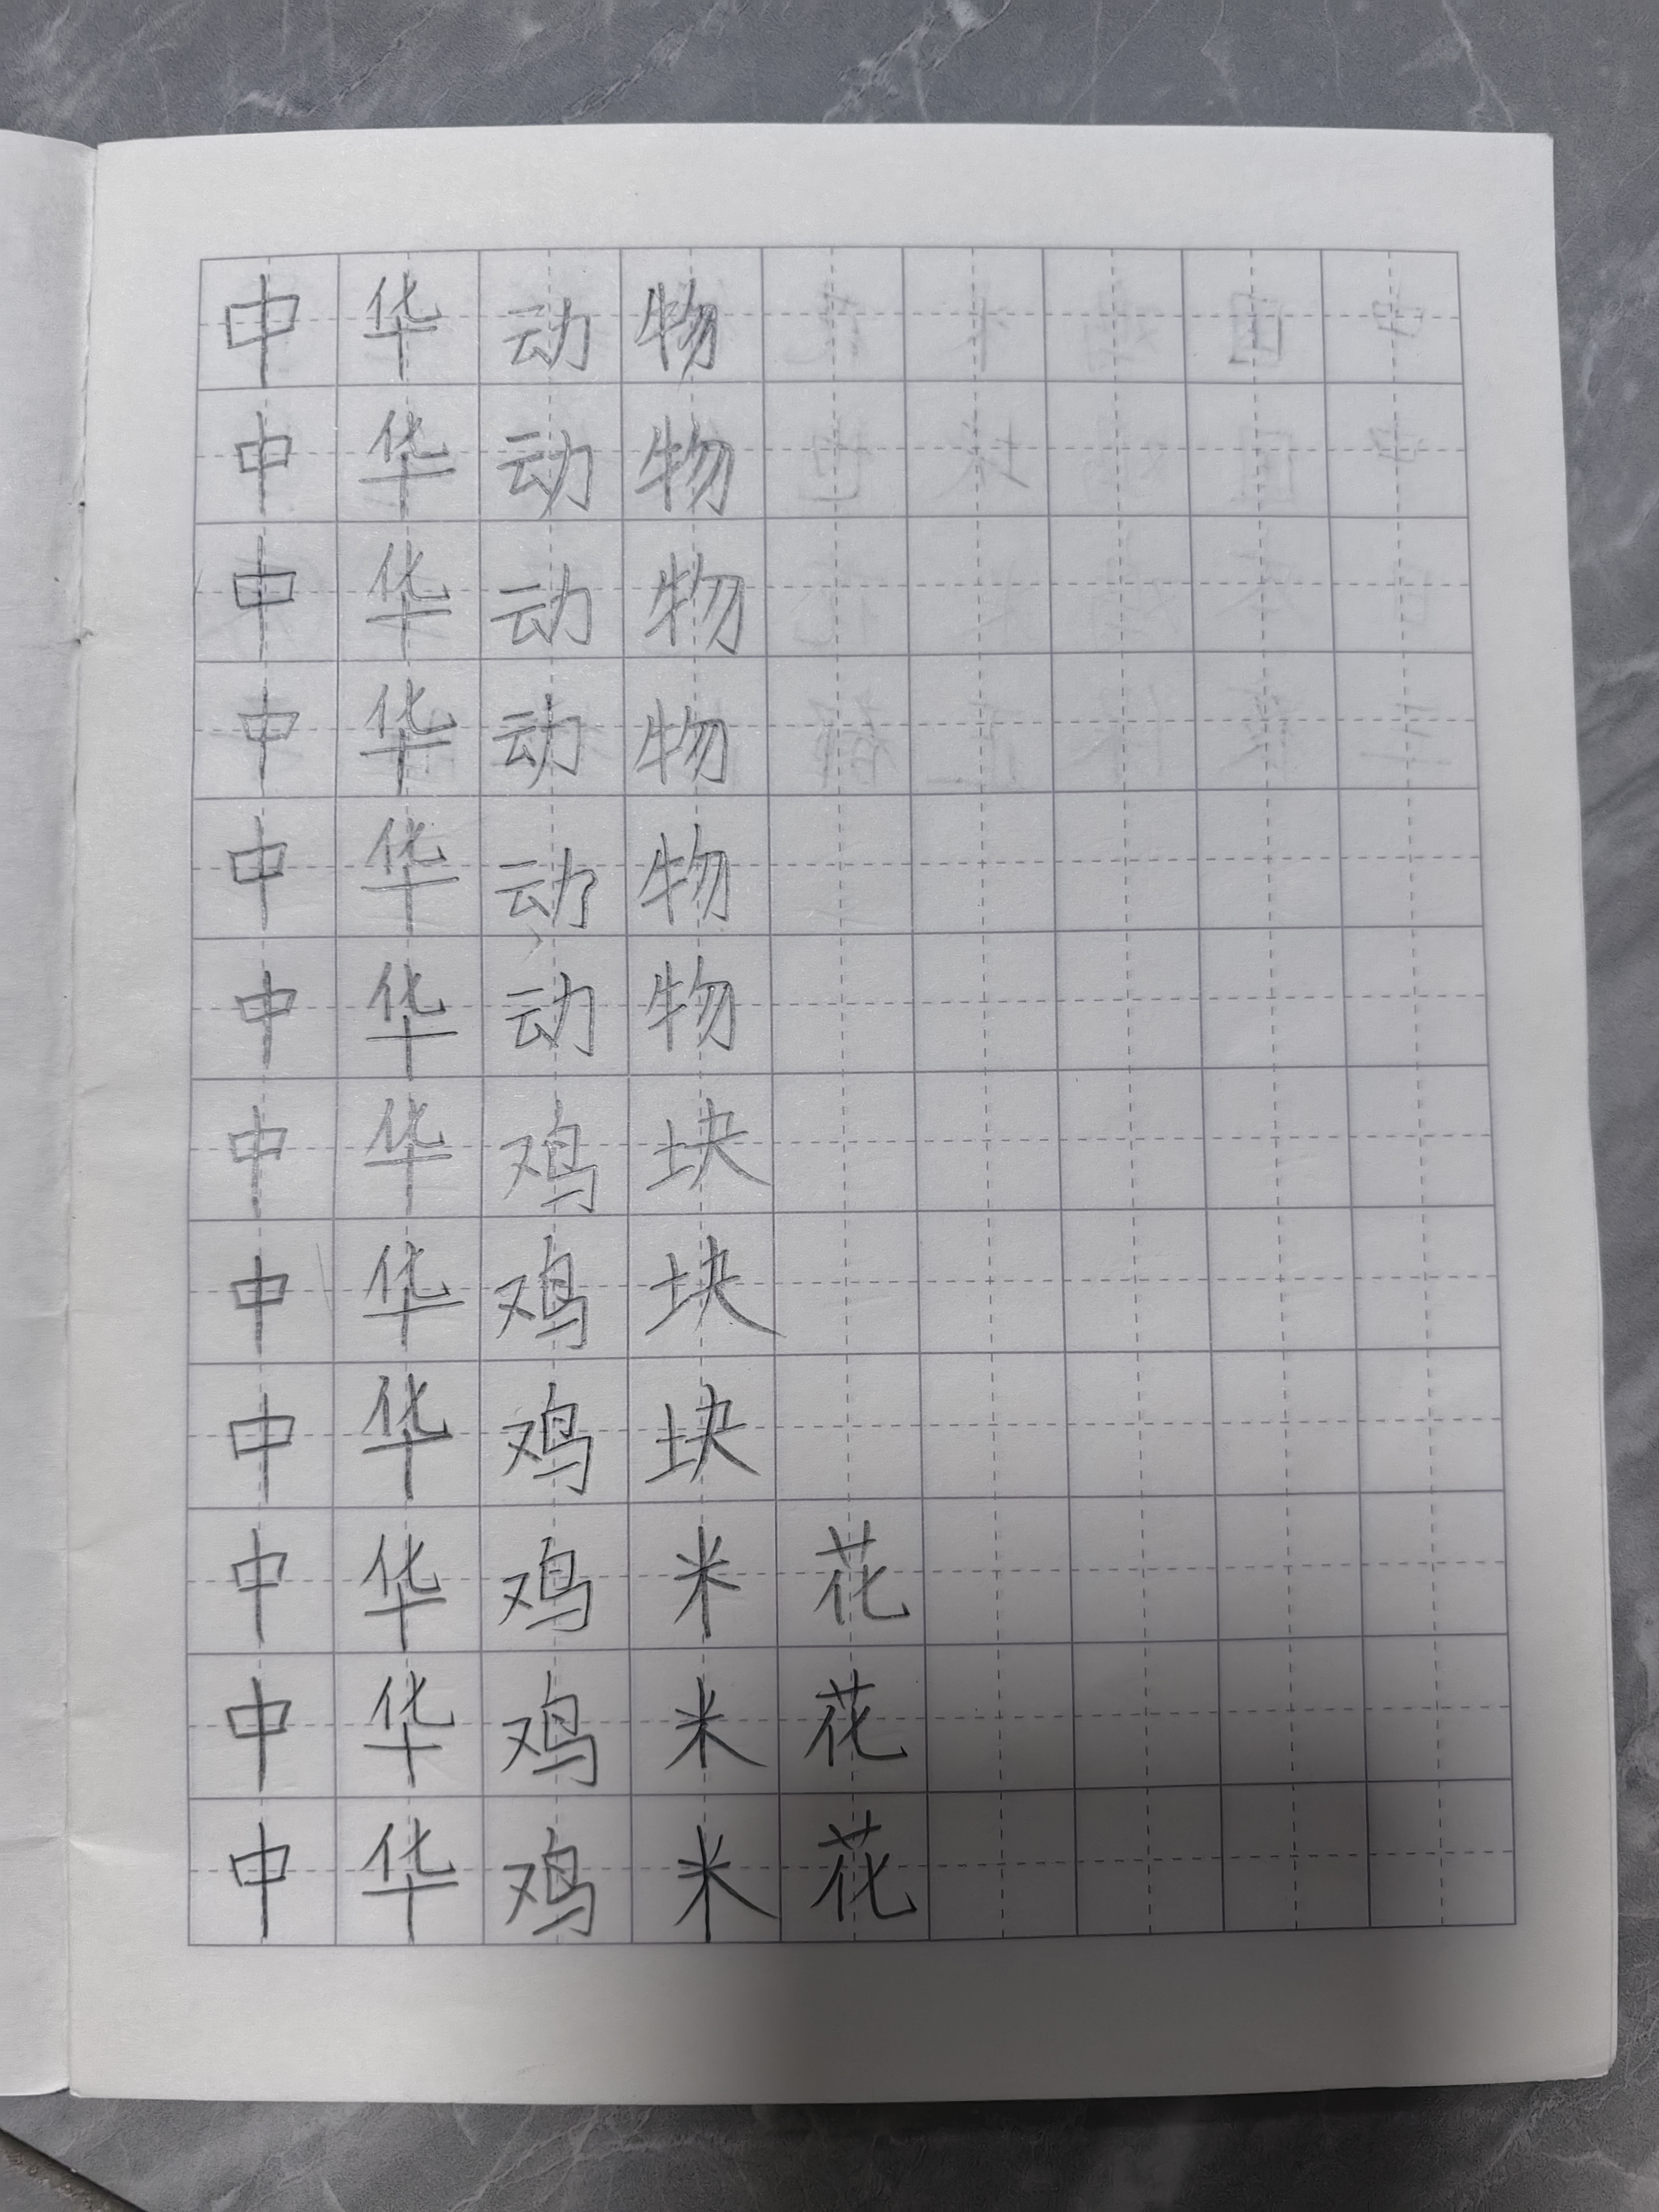 中华动物
中华动物
中华动物
中华动物
中华动物
中华动物
中华鸡块
中华鸡块
中华鸡块
中华鸡米花
中华鸡米花
中华鸡米花